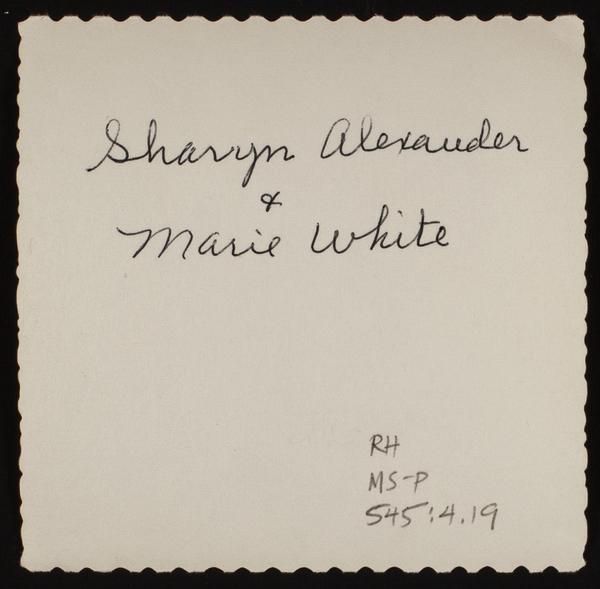 Sharyn Alexander
&
Marie White
RH
MS-P
545:4.19